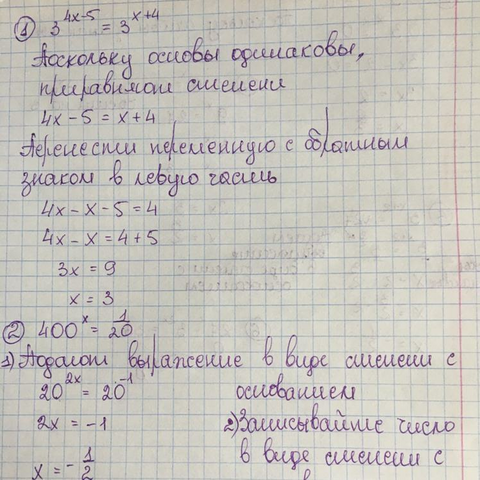 ① 3^(4x-5) = 3^(x+4)
Поскольку основы одинаковы,
приравняют степени
4x - 5 = x + 4
Перенести переменную с обратным
знаком в левую часть
4x - x - 5 = 4
4x - x = 4 + 5
3x = 9
x = 3
② 400^x = 1/20
1) Подают выражение в виде степени с
основанием
20^(2x) = 20^(-1)
2x = -1
x = -1/2
2) Записывайте число
в виде степени с